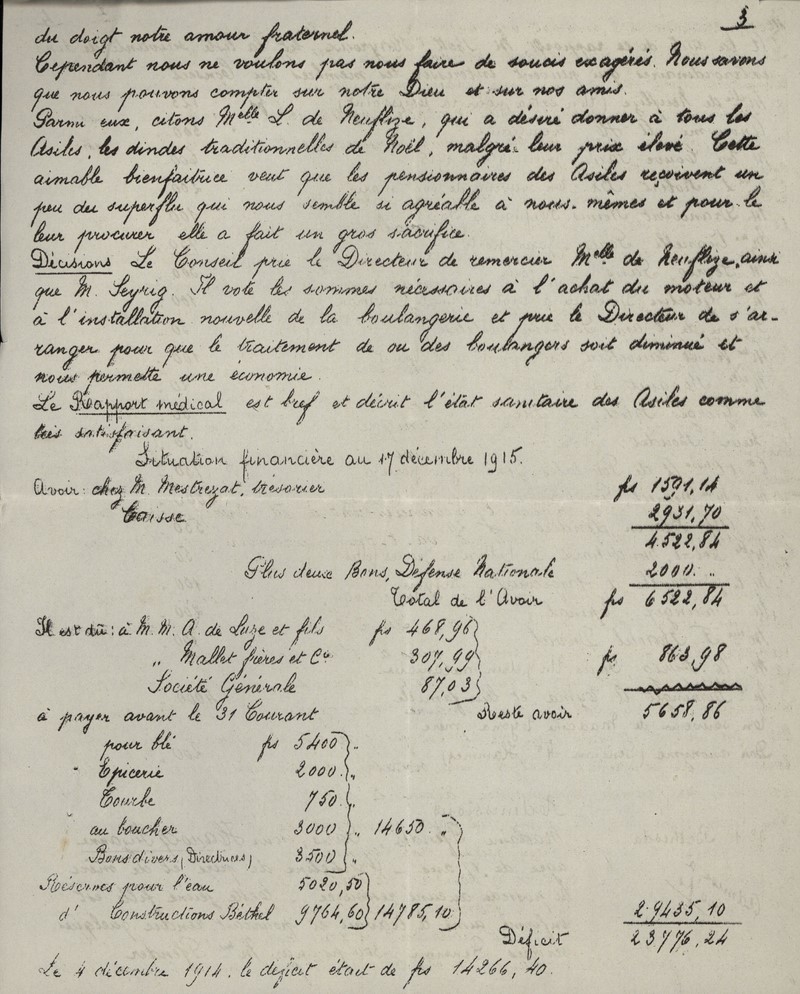 3
du doigt notre amour fraternel.
Cependant nous ne voulons pas nous faire de soucis exagérés. Nous savons
que nous pouvons compter sur notre Dieu et sur nos amis.
Parmi eux, citons Melle L. de Neuflize, qui a désiré donner à tous les
Asiles, les dindes traditionnelles de Noël, malgré leur prix élevé. Cette
aimable bienfaitrice veut que les pensionnaires des Asiles reçoivent un
peu du superflu qui nous semble si agréable à nous-mêmes et pour le
leur procurer elle a fait un gros sacrifice.
Décisions Le Conseil prie le Directeur de remercier Melle de Neuflize, ainsi
que M. Seyrig. Il vote les sommes nécessaires à l'achat du moteur et
à l'installation nouvelle de la boulangerie et prie le Directeur de s'ar-
ranger pour que le traitement de ou des boulangers soit diminué et
nous permette une économie.
Le Rapport médical est bref et décrit l'état sanitaire des Asiles comme
très satisfaisant.
Situation financière au 17 décembre 1915.
Avoir: chez M. Mestrezat, trésorier frs 1591,14
Caisse 2931,70
4522,84
Plus deux Bons, Défense Nationale 2000. "
Total de l'Avoir frs 6522,84
Il est dû: à M.M. A. de Luze et fils frs 468,96
" Mallet frères et Cie 307,99 frs 863,98
Société Générale 87,03
à payer avant le 31 Courant Reste avoir 5658,86
pour blé frs 5400 "
" Epicerie 2000. "
Tourbe 750. "
au boucher 3000 " 14650. "
Bons divers, (Directrices) 3500 "
Réserves pour l'eau 5020,50
d° Constructions Béthel 9764,60 14785,10 29435,10
Déficit 23776,24
Le 4 décembre 1914, le déficit était de frs 14266,40.